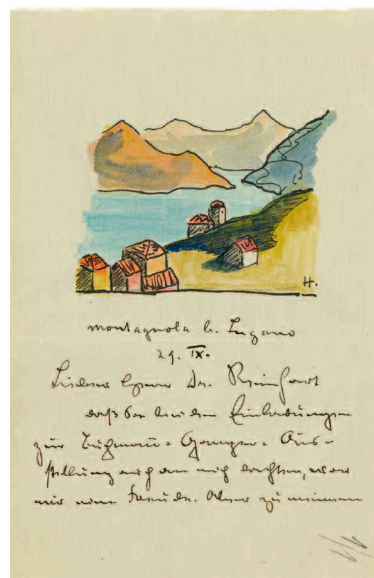 H.
Montagnola b. Lugano
29. IX.
Lieber Herr Dr. Reinhart
daß Sie bei den Einladungen
zur Gamper- Aus-
stellung auch an mich dachten, war
mir eine Freude. Aber zu meinem